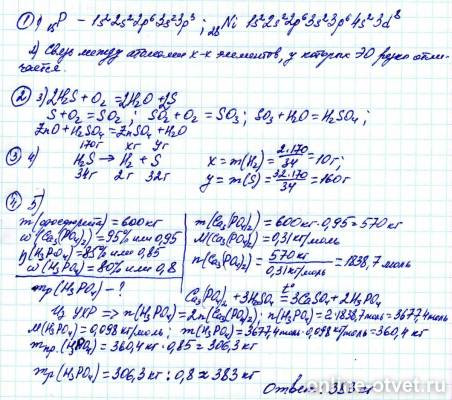 ① 1) ₁₅P – 1s²2s²2p⁶3s²3p³ ; ₂₈Ni 1s²2s²2p⁶3s²3p⁶4s²3d⁸
2) Связь между атомами х-х элементов, у которых ЭО резко отли-
чается.
② 3) 2H₂S + O₂ = 2H₂O + 2S
S + O₂ = SO₂ ; SO₂ + O₂ = SO₃ ; SO₃ + H₂O = H₂SO₄ ;
ZnO + H₂SO₄ = ZnSO₄ + H₂O
170г хг уг
③ 4) H₂S → H₂ + S x = m(H₂) = 2·170/34 = 10г;
34г 2г 32г y = m(S) = 32·170/34 = 160г
④ 5)
m(фосфорита) = 600кг
ω(Ca₃(PO₄)₂) = 95% или 0,95
η(H₃PO₄) = 85% или 0,85
ω(H₃PO₄) = 80% или 0,8
mр(H₃PO₄) – ?
m(Ca₃(PO₄)₂) = 600кг · 0,95 = 570 кг
M(Ca₃(PO₄)₂) = 0,31 кг/моль
n(Ca₃(PO₄)₂) = 570 кг / 0,31 кг/моль = 1838,7 моль
Ca₃(PO₄)₂ + 3H₂SO₄ =t° 3CaSO₄ + 2H₃PO₄
Из УХР => n(H₃PO₄) = 2n(Ca₃(PO₄)₂) ; n(H₃PO₄) = 2·1838,7 моль = 3677,4 моль
M(H₃PO₄) = 0,098 кг/моль ; m(H₃PO₄) = 3677,4 моль · 0,098 кг/моль = 360,4 кг
mпр.(H₃PO₄) = 360,4 кг · 0,85 = 306,3 кг
mр(H₃PO₄) = 306,3 кг : 0,8 ≈ 383 кг
Ответ: 383 кг
online-otvet.ru